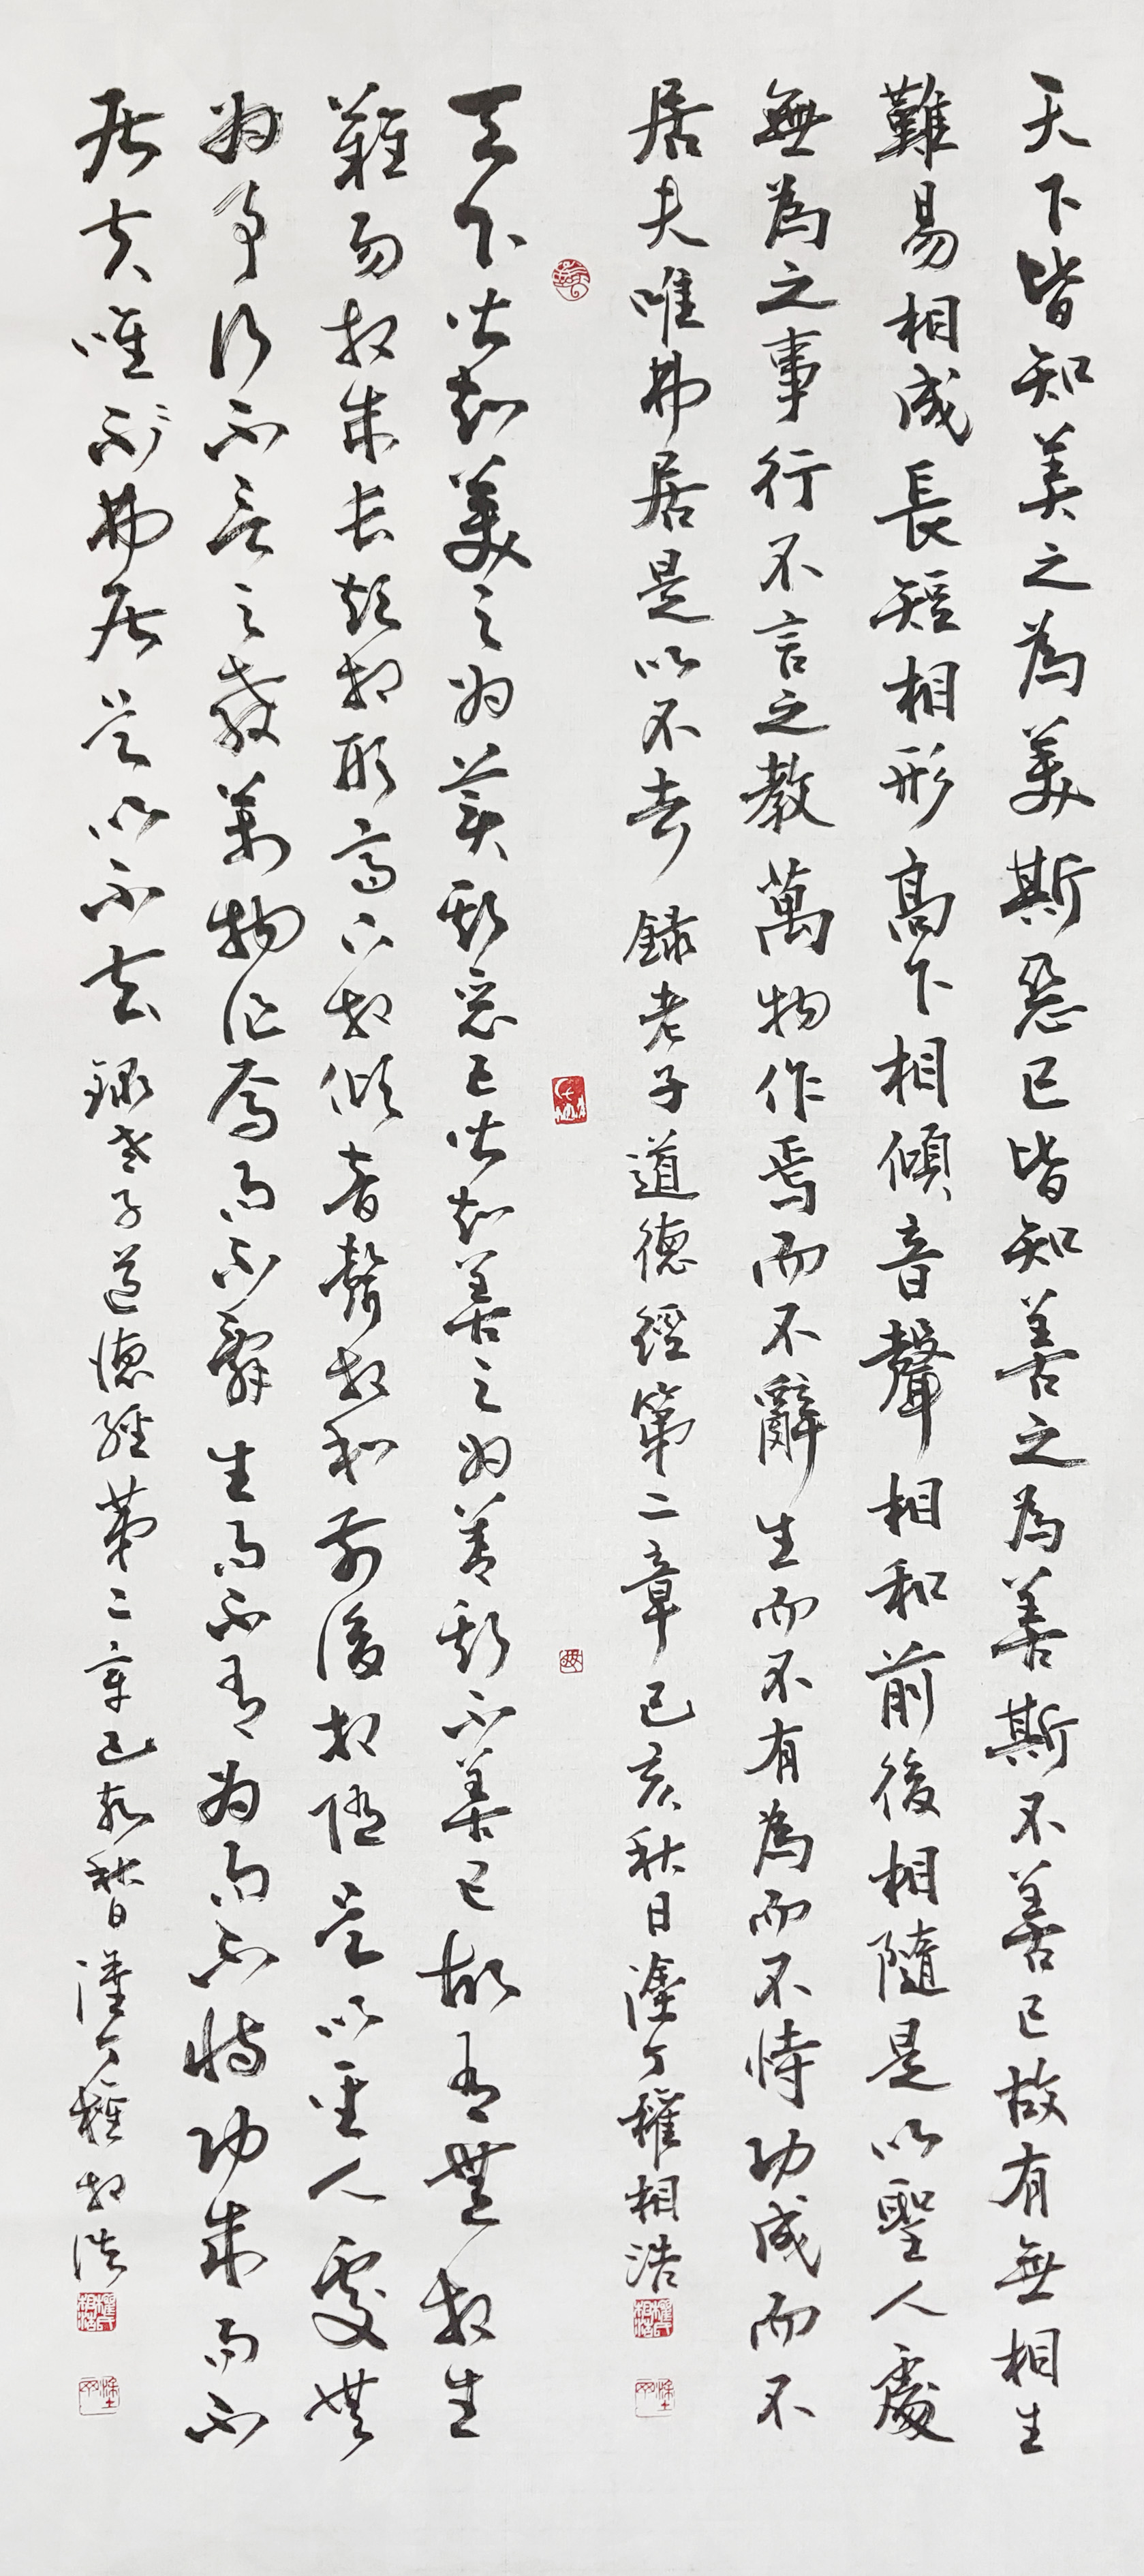 天下皆知美之為美斯惡已皆知善之為善斯不善已故有無相生
難易相成長短相形高下相傾音聲相和前後相隨是以聖人處
無為之事行不言之教萬物作焉而不辭生而不有為而不恃功成而不
居夫唯弗居是以不去錄老子道德經第二章己亥秋日塗丁權相浩
天下皆知美之為美斯惡已皆知善之為善斯不善已故有無相生
難易相成長短相形高下相傾音聲相和前後相隨是以聖人處無
為事行不言之教萬物作焉而不辭生而不有為而不恃功成而不
居夫唯不弗居是以不去錄老子道德經第二章己亥秋日塗丁權相浩